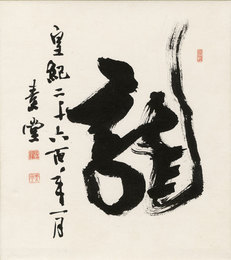 龍
皇紀二千六百年一月